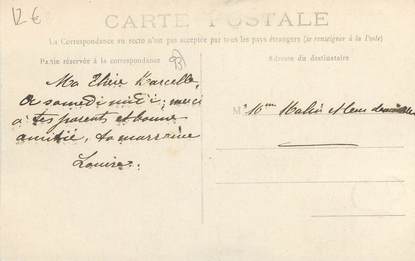 12 €
CARTE POSTALE
La Correspondance au recto n'est pas acceptée par tous les pays étrangers (se renseigner à la Poste)
Partie réservée à la correspondance
Adresse du destinataire
Ma chère Marcelle,
à samedi midi ; merci
à tes parents et bonne
amitié, ta marraine
Louise.
M